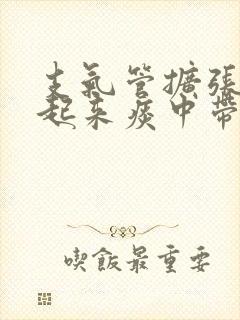 支氣管擴張
起來痰中帶
喫飯最重要